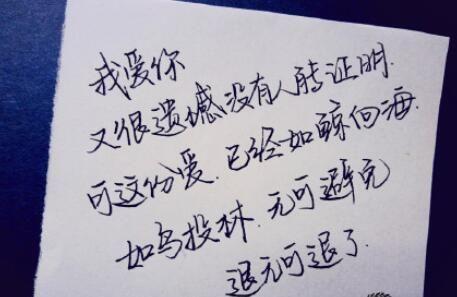 我爱你
又很遗憾没有人能证明.
可这份爱.已经如鲸向海.
如鸟投林.无可避免
退无可退了.